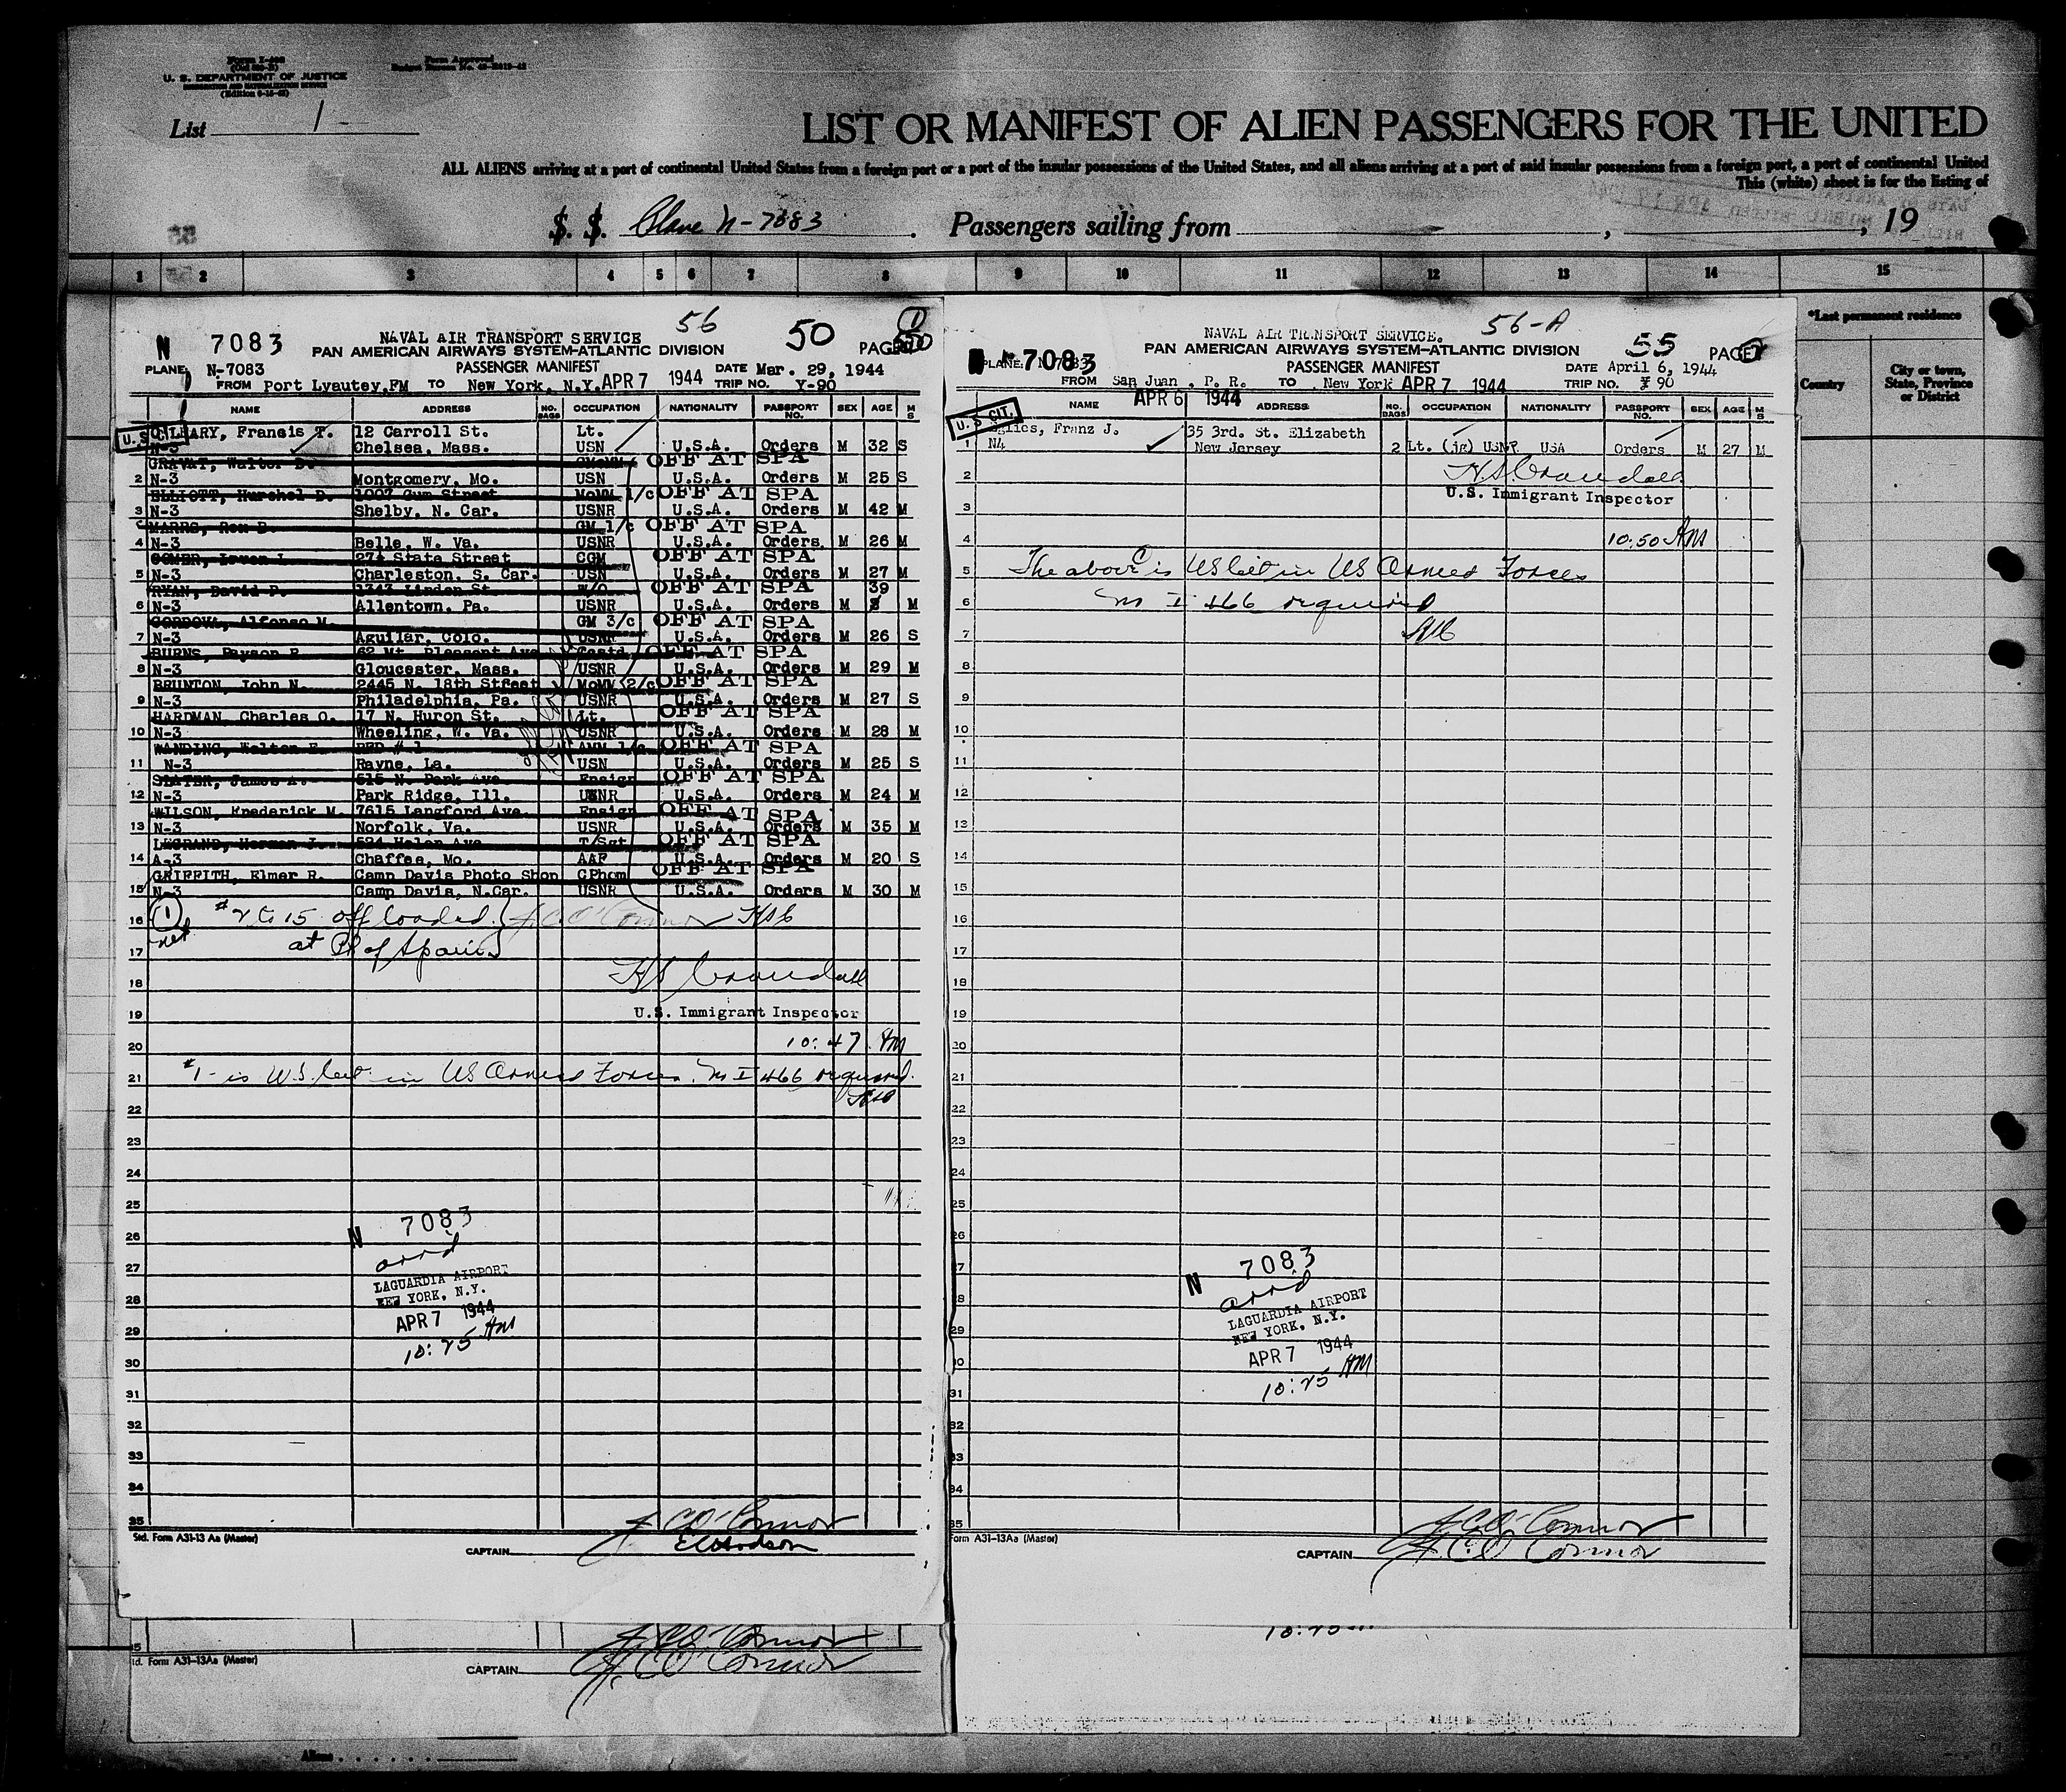 Form I-466
(Old 500-B)
U. S. DEPARTMENT OF JUSTICE
IMMIGRATION AND NATURALIZATION SERVICE
Form Approved
List 1 -
LIST OR MANIFEST OF ALIEN PASSENGERS FOR THE UNITED
ALL ALIENS arriving at a port of continental United States from a foreign port or a port of the insular possessions of the United States, and all aliens arriving at a port of said insular possessions from a foreign port, a port of continental United
This (white) sheet is for the listing of
S. S. Plane N-7083. Passengers sailing from , , 19
1 2 3 4 5 6 7 8 9 10 11 12 13 14 15
*Last permanent residence
Country
City or town, State, Province or District
56 50
N 7083 NAVAL AIR TRANSPORT SERVICE
PAN AMERICAN AIRWAYS SYSTEM-ATLANTIC DIVISION PAGE
PLANE N-7083 PASSENGER MANIFEST DATE Mar. 29, 1944
FROM Port Lyautey, FM TO New York, N.Y. APR 7 1944 TRIP NO. Y-90
NAME ADDRESS NO. BAGS OCCUPATION NATIONALITY PASSPORT NO. SEX AGE M S
U. S. CIT.
O'LEARY, Francis T. 12 Carroll St. Lt.
N-3 Chelsea, Mass. USN U.S.A. Orders M 32 S
GRAVAT, Walter D. CMoMM OFF AT SPA
2 N-3 Montgomery, Mo. USN U.S.A. Orders M 25 S
ELLIOTT, Hurshel D. 1007 Gum Street MoMM 1/c OFF AT SPA
3 N-3 Shelby, N. Car. USNR U.S.A. Orders M 42 M
MARRS, Rex D. GM 1/c OFF AT SPA
4 N-3 Belle, W. Va. USNR U.S.A. Orders M 26 M
274 State Street CGM OFF AT SPA
5 N-3 Charleston, S. Car. USN U.S.A. Orders M 27 M
RYAN, David P. 1343 Linden St. W/O OFF AT SPA 39
6 N-3 Allentown, Pa. USNR U.S.A. Orders M M
CORDOVA, Alfonso M. GM 3/c OFF AT SPA
7 N-3 Aguilar, Colo. USNR U.S.A. Orders M 26 S
BURNS, Payson R. 62 Mt. Pleasant Ave. OFF AT SPA
8 N-3 Gloucester, Mass. USNR U.S.A. Orders M 29 M
BRUNTON, John N. 2445 N. 18th Street MoMM 2/c OFF AT SPA
9 N-3 Philadelphia, Pa. USNR U.S.A. Orders M 27 S
HARDMAN, Charles O. 17 N. Huron St. Lt. OFF AT SPA
10 N-3 Wheeling, W. Va. USNR U.S.A. Orders M 28 M
WANDING, Walton E. RFD # 1 AMM 1/c OFF AT SPA
11 N-3 Rayne, La. USN U.S.A. Orders M 25 S
SLATER, James A. 515 N. Park Ave. Ensign OFF AT SPA
12 N-3 Park Ridge, Ill. USNR U.S.A. Orders M 24 M
WILSON, Frederick M. 7615 Langford Ave. Ensign OFF AT SPA
13 N-3 Norfolk, Va. USNR U.S.A. Orders M 35 M
LEGRAND, Herman J. 524 Helen Ave. T/Sgt OFF AT SPA
14 A-3 Chaffee, Mo. AAF U.S.A. Orders M 20 S
GRIFFITH, Elmer R. Camp Davis Photo Shop CPhom OFF AT SPA
15 N-3 Camp Davis, N.Car. USNR U.S.A. Orders M 30 M
16 1 # 2 to 15 offloaded J.C. O'Connor HSC
net at Pt of Spain
17
18 HS Crandall
19 U.S. Immigrant Inspector
20 10:47 AM
21 #1- is U.S. Cit in US Armed Forces. No I 466 required.
HSC
22
23
24
25
N 7083
26 arrd
27 LAGUARDIA AIRPORT
28 NEW YORK, N.Y.
APR 7 1944
29 10:25 AM
30
31
32
33
34
35 J.C. O'Connor
Std. Form A31-13 Aa (Master)
CAPTAIN
J.C. O'Connor
Form A31-13Aa (Master)
CAPTAIN J.C. O'Connor
56-A 55
7083 NAVAL AIR TRANSPORT SERVICE.
PAN AMERICAN AIRWAYS SYSTEM-ATLANTIC DIVISION PAGE
PLANE PASSENGER MANIFEST DATE April 6, 1944
FROM San Juan, P. R. TO New York APR 7 1944 TRIP NO. Y 90
APR 6 1944
NAME ADDRESS NO. BAGS OCCUPATION NATIONALITY PASSPORT NO. SEX AGE M S
U. S. CIT.
Franz J. 35 3rd. St. Elizabeth
1 N4 New Jersey 2 Lt. (jg) USNR USA Orders M 27 M
2 H.S. Crandall
U.S. Immigrant Inspector
3
4 10:50 AM
5 The above is US Cit in US Armed Forces
6 No I 466 required
7 HSC
8
9
10
11
12
13
14
15
16
17
18
19
20
21
22
23
24
25
26
N 7083
27 arrd
28 LAGUARDIA AIRPORT
29 NEW YORK, N.Y.
APR 7 1944
30 10:25 AM
31
32
33
34
35 J.C. O'Connor
Form A31-13Aa (Master)
CAPTAIN J.C. O'Connor
Aliens